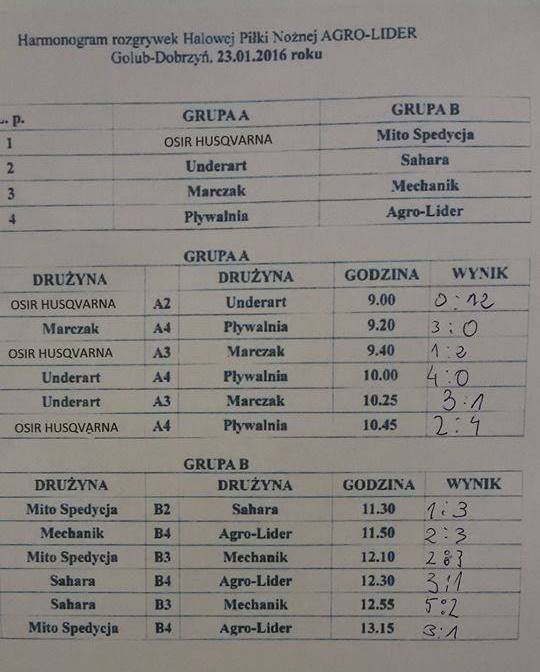 Harmonogram rozgrywek Halowej Piłki Nożnej AGRO-LIDER
Golub-Dobrzyń, 23.01.2016 roku
L. p. GRUPA A GRUPA B
1 OSIR HUSQVARNA Mito Spedycja
2 Underart Sahara
3 Marczak Mechanik
4 Pływalnia Agro-Lider
GRUPA A
DRUŻYNA DRUŻYNA GODZINA WYNIK
OSIR HUSQVARNA A2 Underart 9.00 0:12
Marczak A4 Pływalnia 9.20 3:0
OSIR HUSQVARNA A3 Marczak 9.40 1:2
Underart A4 Pływalnia 10.00 4:0
Underart A3 Marczak 10.25 3:1
OSIR HUSQVARNA A4 Pływalnia 10.45 2:4
GRUPA B
DRUŻYNA DRUŻYNA GODZINA WYNIK
Mito Spedycja B2 Sahara 11.30 1:3
Mechanik B4 Agro-Lider 11.50 2:3
Mito Spedycja B3 Mechanik 12.10 2:3
Sahara B4 Agro-Lider 12.30 3:1
Sahara B3 Mechanik 12.55 5:2
Mito Spedycja B4 Agro-Lider 13.15 3:1